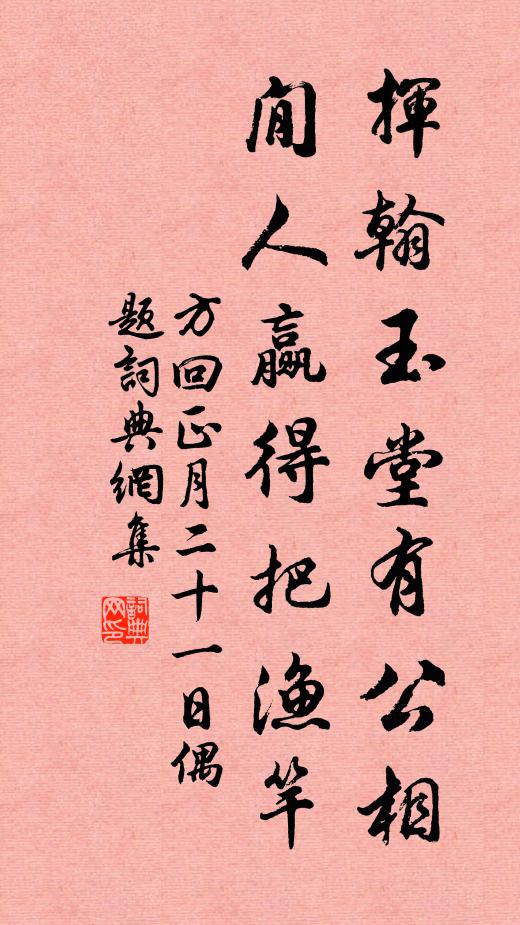 揮翰玉堂有公相
閒人贏得把漁竿
方回正月二十一日偶
題詞典網集
詞典
网印